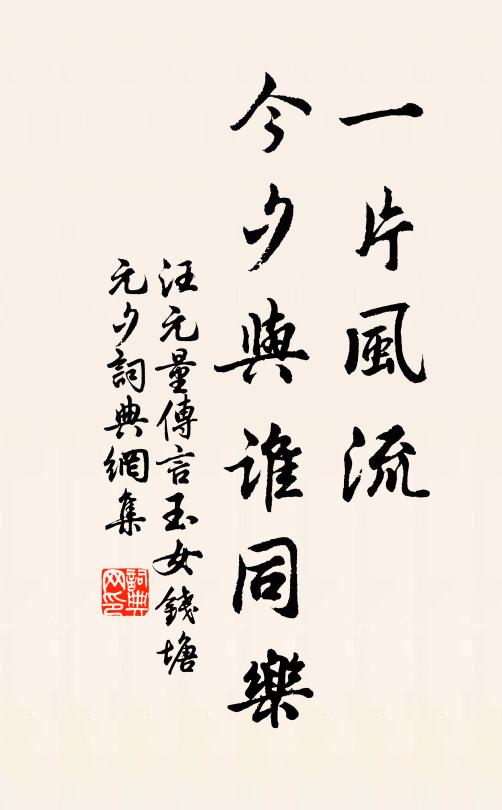 一片風流
今夕與誰同樂
汪元量傳言玉女錢塘
元夕詞典網集
詞典
网印